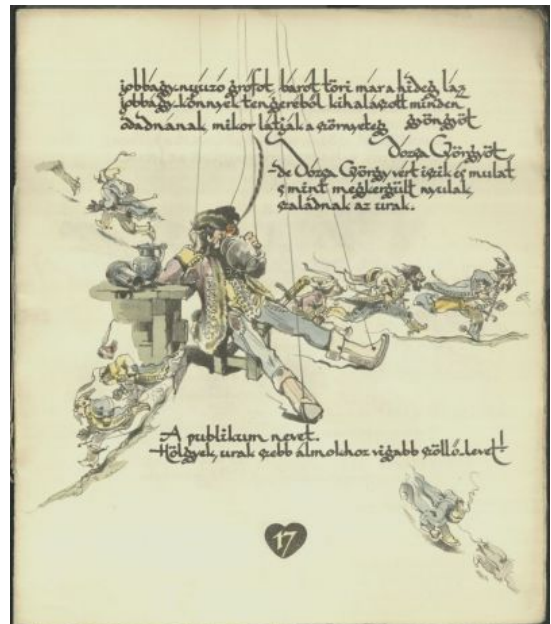 jobbágy-nyúzó grófot, bárót töri már a hideg láz
jobbágy-könnyek tengeréből kihalászott minden
odadnának, mikor látják a szörnyeteg gyöngyöt
Dózsa Györgyöt
-de Dózsa György vért iszik és mulat,
s mint megkergült nyulak,
szaladnak az urak.
A publikum nevet.
Hölgyek, urak szebb álmokhoz vigabb szöllő-levet!
17